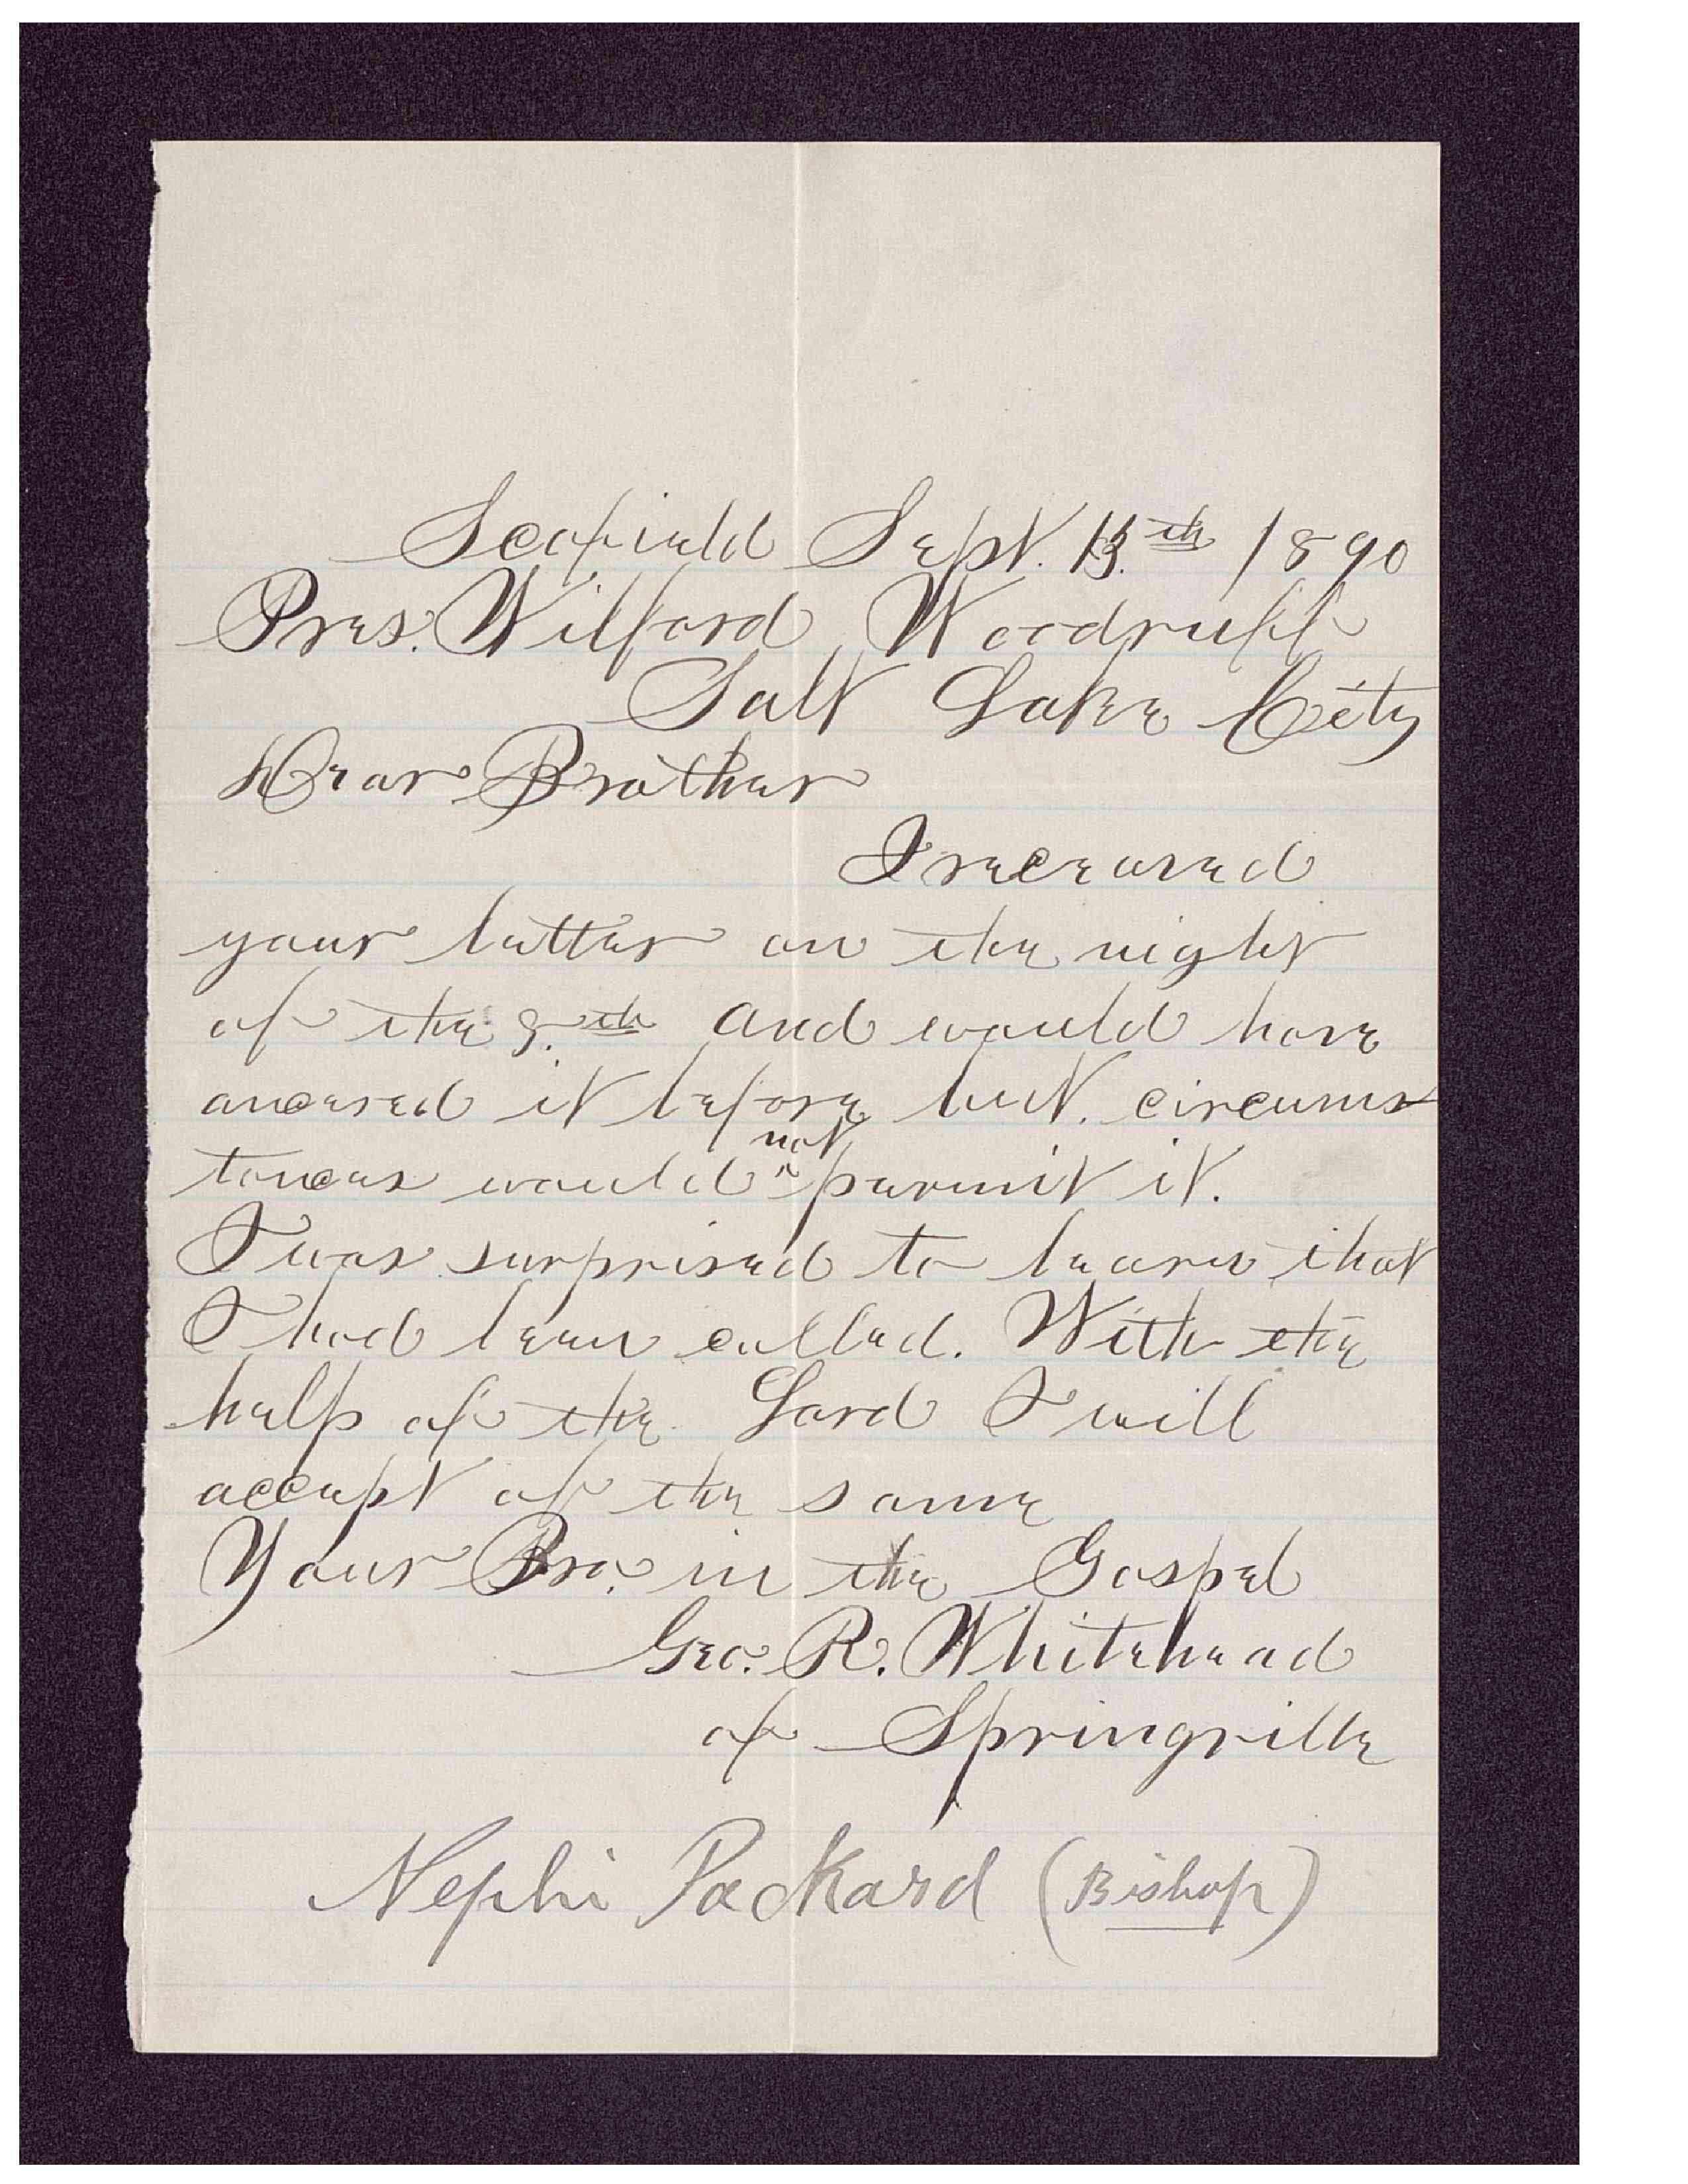 Scofield Sept. 13.th 1890
Pres. Wilford Woodruff
Salt Lake City
Dear Brother
I receaved
your letter on the night
of the 9.th and would have
ancered it before but. circums
tances would not permit it.
I was surprised to learn that
I had been called. With the
help of the Lord I will
accept of the same
Your Bro. in the Gospel
Geo. R. Whitehead
of Springville
Nephi Packard (Bishop)